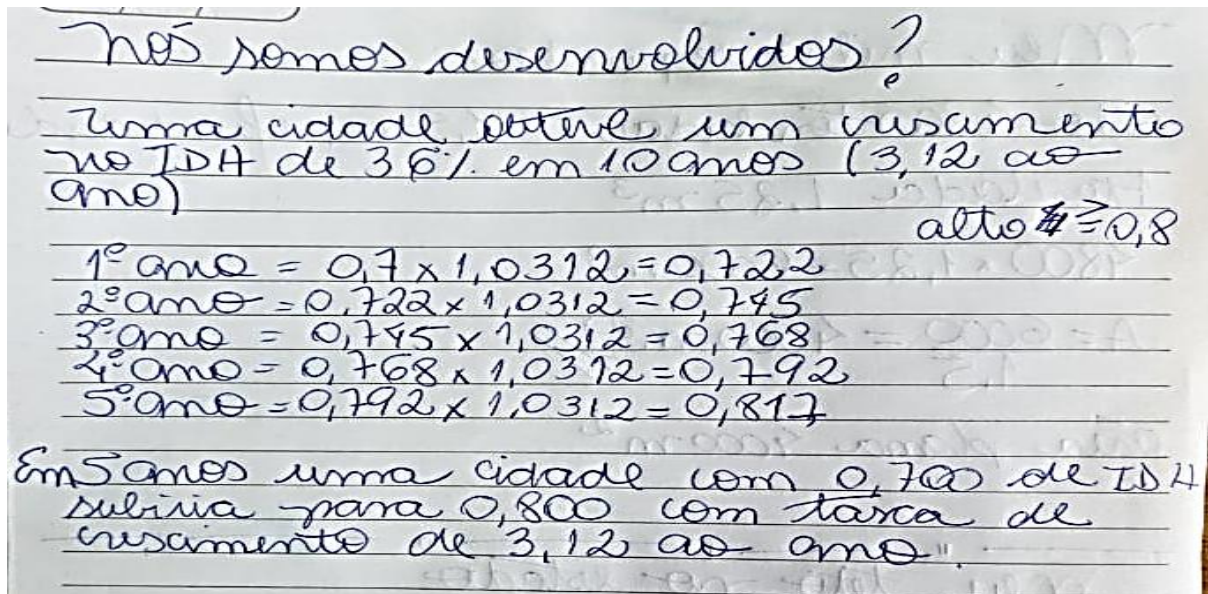 nós somos desenvolvidos?
uma cidade obteve um cresamento
no IDH de 36%. em 10 anos (3,12 ao
ano)
alto ≥0,8
1º ano = 0,7 x 1,0312 = 0,722
2º ano = 0,722 x 1,0312 = 0,745
3º ano = 0,745 x 1,0312 = 0,768
4º ano = 0,768 x 1,0312 = 0,792
5º ano = 0,792 x 1,0312 = 0,817
Em 5 anos uma cidade com 0,700 de IDH
subiria para 0,800 com taxa de
cresamento de 3,12 ao ano".